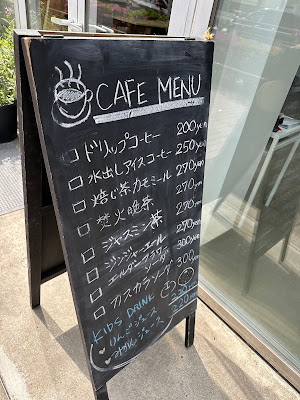 CAFE MENU
□ ドリップコーヒー 200yen
□ 水出しアイスコーヒー 250yen
□ 焙じ茶カモミール 270yen
□ 焚火晩茶 270yen
□ ジャスミン茶 270yen
□ ジンジャーエール 270yen
□ エルダーフラワーソーダ 300yen
□ カスカラソーダ 300yen
KID'S DRINK
りんごジュース 220yen
みかんジュース 220yen